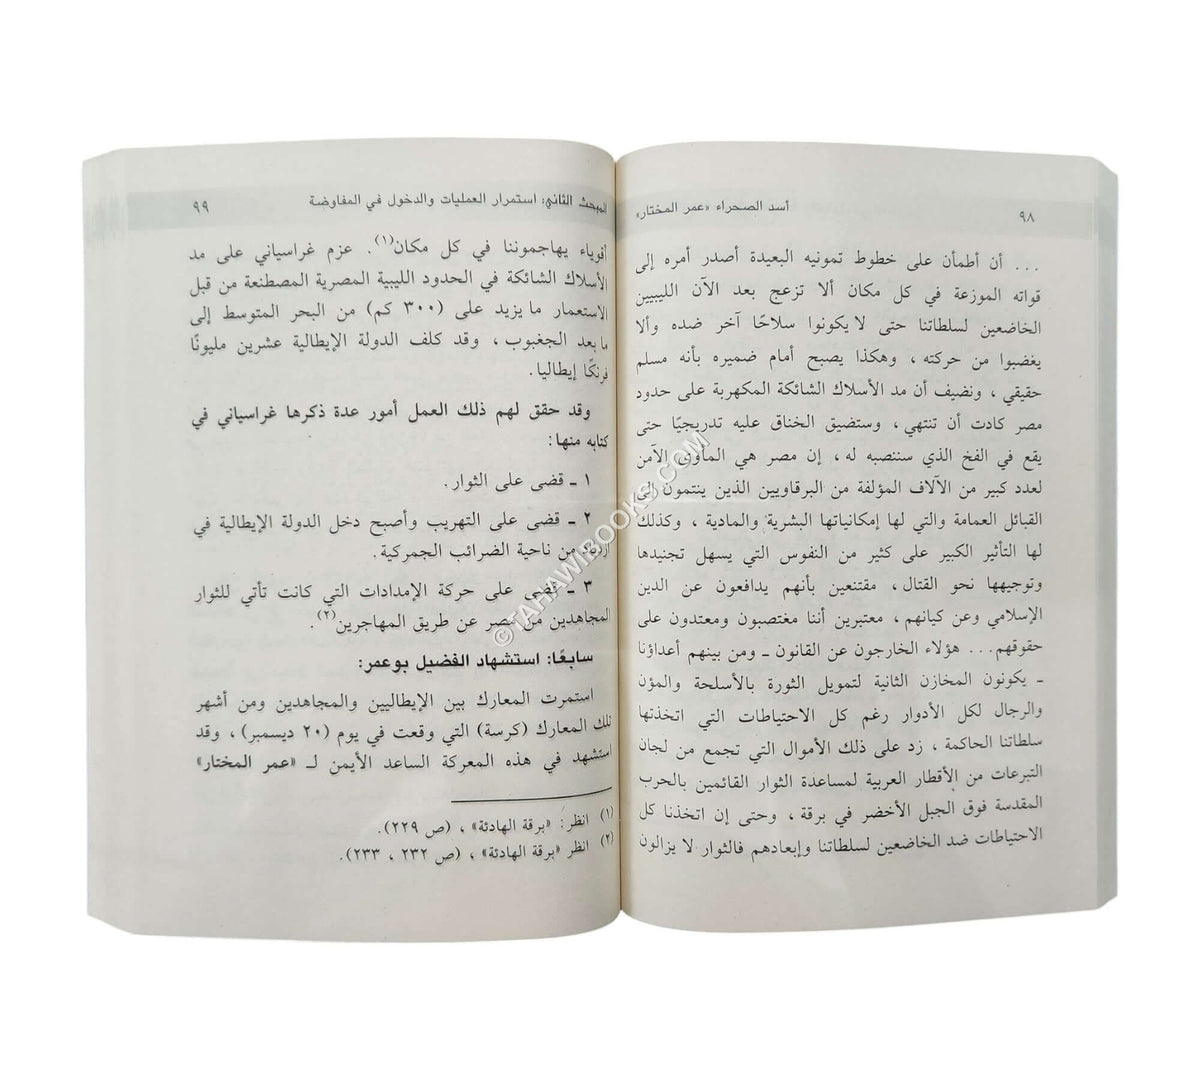 ٩٨
أسد الصحراء «عمر المختار»
... أن أطمأن على خطوط تمونيه البعيدة أصدر أمره إلى
قواته الموزعة في كل مكان ألا تزعج بعد الآن الليبيين
الخاضعين لسلطاتنا حتى لا يكونوا سلاحًا آخر ضده وألا
يغضبوا من حركته ، وهكذا يصبح أمام ضميره بأنه مسلم
حقيقي ، ونضيف أن مد الأسلاك الشائكة المكهربة على حدود
مصر كادت أن تنتهي ، وستضيق الخناق عليه تدريجيًا حتى
يقع في الفخ الذي سننصبه له ، إن مصر هي المأوى الآمن
لعدد كبير من الآلاف المؤلفة من البرقاويين الذين ينتمون إلى
القبائل العمامة والتي لها إمكانياتها البشرية والمادية ، وكذلك
لها التأثير الكبير على كثير من النفوس التي يسهل تجنيدها
وتوجيهها نحو القتال ، مقتنعين بأنهم يدافعون عن الدين
الإسلامي وعن كيانهم ، معتبرين أننا مغتصبون ومعتدون على
حقوقهم... هؤلاء الخارجون عن القانون ـ ومن بينهم أعداؤنا
ـ يكونون المخازن الثانية لتمويل الثورة بالأسلحة والمؤن
والرجال لكل الأدوار رغم كل الاحتياطات التي اتخذتها
سلطاتنا الحاكمة ، زد على ذلك الأموال التي تجمع من لجان
التبرعات من الأقطار العربية لمساعدة الثوار القائمين بالحرب
المقدسة فوق الجبل الأخضر في برقة ، وحتى إن اتخذنا كل
الاحتياطات ضد الخاضعين لسلطاتنا وإبعادهم فالثوار لا يزالون
المبحث الثاني: استمرار العمليات والدخول في المفاوضة
٩٩
أقوياء يهاجموننا في كل مكان(١). عزم غراسياني على مد
الأسلاك الشائكة في الحدود الليبية المصرية المصطنعة من قبل
الاستعمار ما يزيد على (٣٠٠ كم) من البحر المتوسط إلى
ما بعد الجغبوب ، وقد كلف الدولة الإيطالية عشرين مليونًا
فرنكًا إيطاليا.
وقد حقق لهم ذلك العمل أمور عدة ذكرها غراسياني في
كتابه منها:
١ ـ قضى على الثوار.
٢ ـ قضى على التهريب وأصبح دخل الدولة الإيطالية في
ازدياد من ناحية الضرائب الجمركية.
٣ ـ قضى على حركة الإمدادات التي كانت تأتي للثوار
المجاهدين من مصر عن طريق المهاجرين(٢).
سابعًا: استشهاد الفضيل بوعمر:
استمرت المعارك بين الإيطاليين والمجاهدين ومن أشهر
تلك المعارك (كرسة) التي وقعت في يوم (٢٠ ديسمبر) ، وقد
استشهد في هذه المعركة الساعد الأيمن لـ «عمر المختار»
(١) انظر: «برقة الهادئة» ، (ص ٢٢٩).
(٢) انظر «برقة الهادئة» ، (ص ٢٣٢ ، ٢٣٣).
© TAHAWIBOOKS.COM